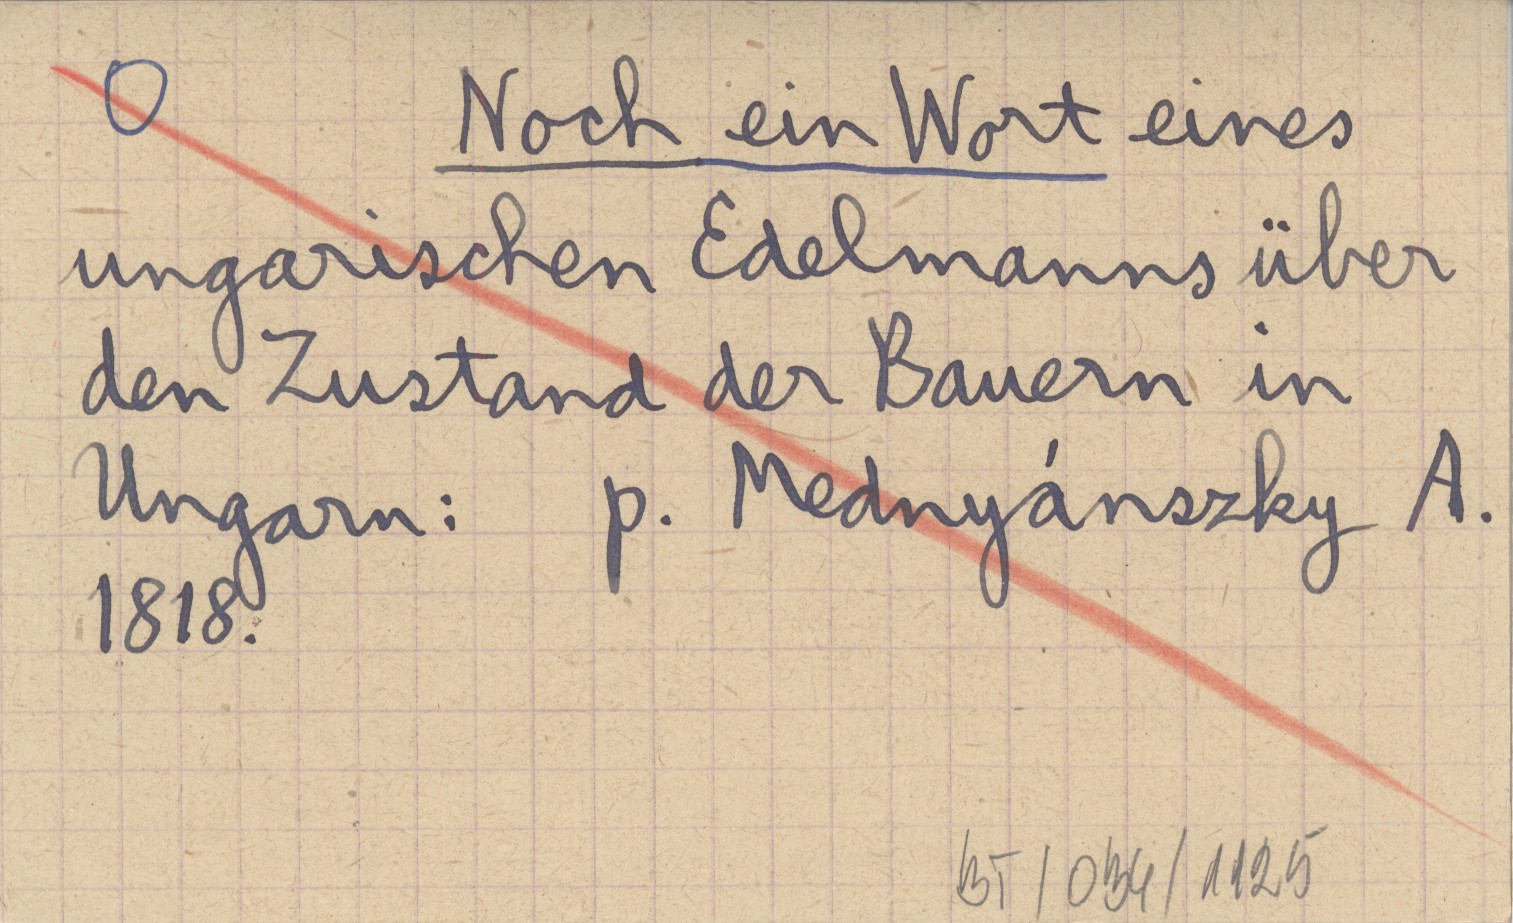 O Noch ein Wort eines
ungarischen Edelmanns über
den Zustand der Bauern in
Ungarn: p. Mednyánszky A.
1818.
BT/034/1125